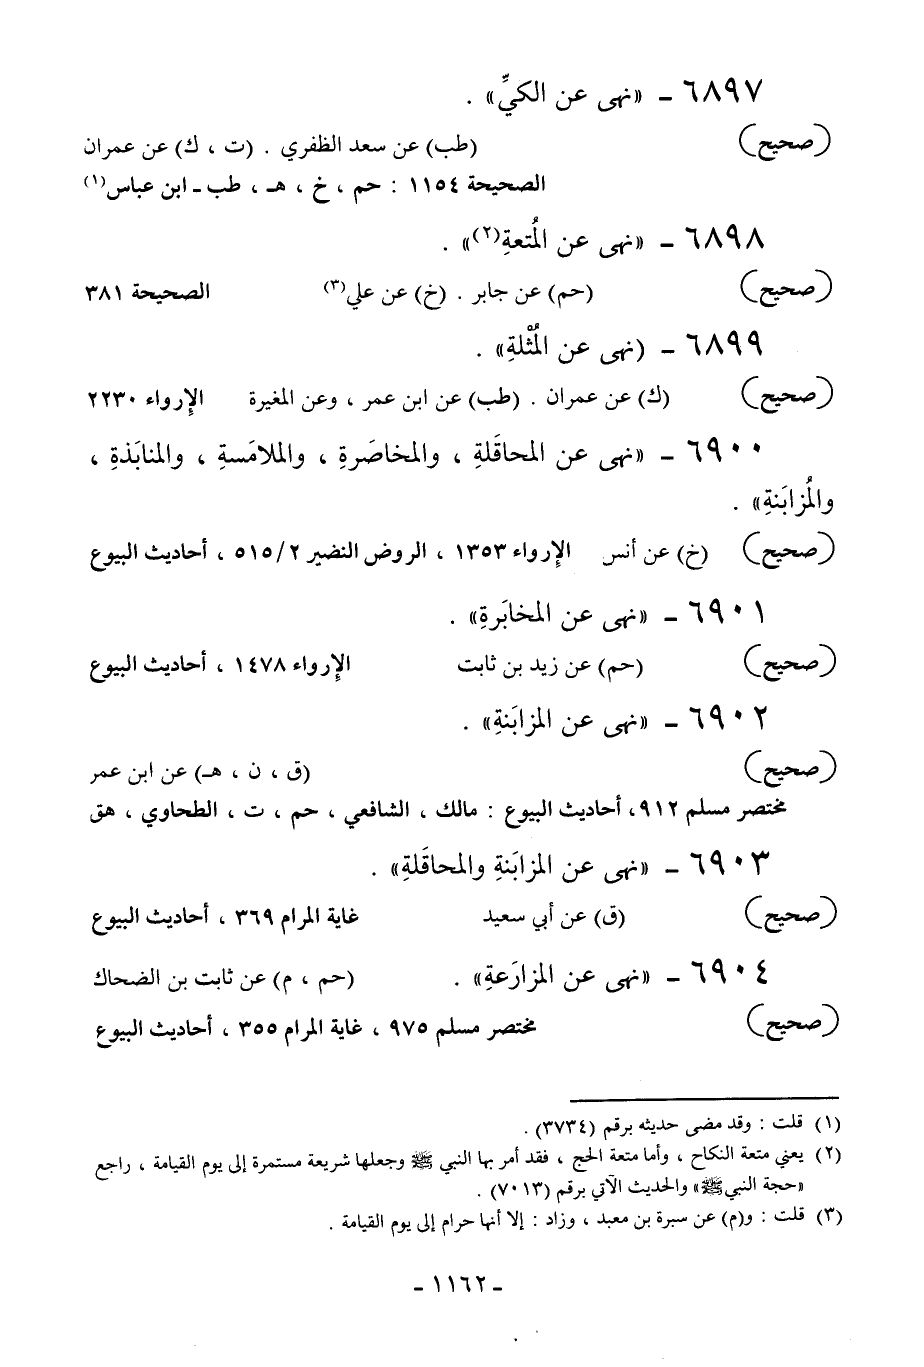 ٦٨٩٧ - «نهى عن الكيِّ» .
(صحيح) (طب) عن سعد الظفري . (ت ، ك) عن عمران
الصحيحة ١١٥٤ : حم ، خ ، هـ ، طب - ابن عباس(١)
٦٨٩٨ - «نهى عن المُتعةِ(٢)» .
(صحيح) (حم) عن جابر . (خ) عن علي(٣) الصحيحة ٣٨١
٦٨٩٩ - (نهى عن المُثْلةِ» .
(صحيح) (ك) عن عمران . (طب) عن ابن عمر ، وعن المغيرة الإرواء ٢٢٣٠
٦٩٠٠ - «نهى عن المحاقَلةِ ، والمخاضَرةِ ، والملامَسةِ ، والمنابَذةِ ،
والمُزابَنةِ» .
(صحيح) (خ) عن أنس الإرواء ١٣٥٣ ، الروض النضير ٥١٥/٢ ، أحاديث البيوع
٦٩٠١ - «نهى عن المخابَرةِ» .
(صحيح) (حم) عن زيد بن ثابت الإرواء ١٤٧٨ ، أحاديث البيوع
٦٩٠٢ - «نهى عن المزابَنةِ» .
(صحيح) (ق ، ن ، هـ) عن ابن عمر
مختصر مسلم ٩١٢، أحاديث البيوع : مالك ، الشافعي ، حم ، ت ، الطحاوي ، هق
٦٩٠٣ - «نهى عن المزابَنةِ والمحاقَلةِ» .
(صحيح) (ق) عن أبي سعيد غاية المرام ٣٦٩ ، أحاديث البيوع
٦٩٠٤ - «نهى عن المزارَعةِ» . (حم ، م) عن ثابت بن الضحاك
(صحيح) مختصر مسلم ٩٧٥ ، غاية المرام ٣٥٥ ، أحاديث البيوع
(١) قلت : وقد مضى حديثه برقم (٣٧٣٤) .
(٢) يعني متعة النكاح ، وأما متعة الحج ، فقد أمر بها النبي ﷺ وجعلها شريعة مستمرة إلى يوم القيامة ، راجع
«حجة النبي ﷺ» والحديث الآتي برقم (٧٠١٣) .
(٣) قلت : و(م) عن سبرة بن معبد ، وزاد : إلا أنها حرام إلى يوم القيامة .
- ١١٦٢ -